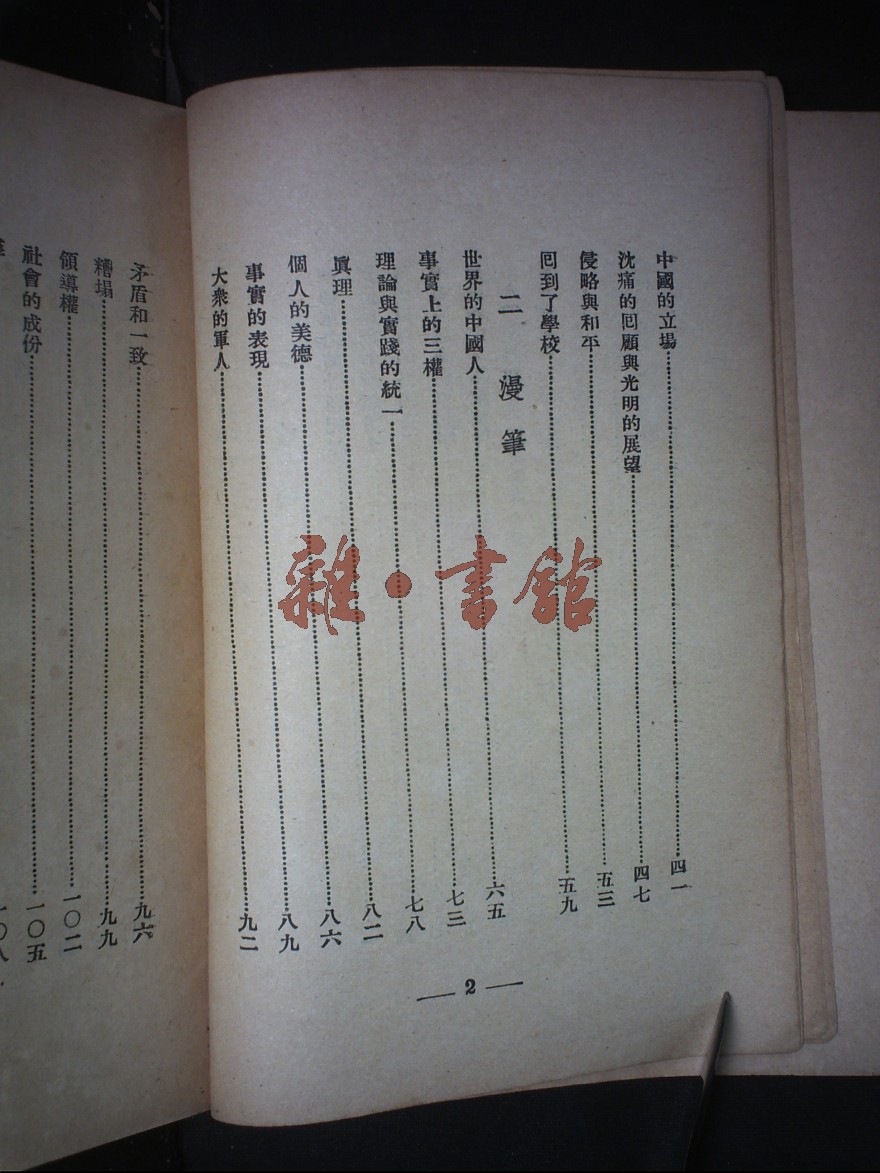 中國的立場⋯⋯四一
沈痛的囘顧與光明的展望⋯⋯四七
侵略與和平⋯⋯五三
囘到了學校⋯⋯五九
二 漫筆
世界的中國人⋯⋯六五
事實上的三權⋯⋯七三
理論與實踐的統一⋯⋯七八
眞理⋯⋯八二
個人的美德⋯⋯八六
事實的表現⋯⋯八九
大衆的軍人⋯⋯九二
— 2 —
矛盾和一致⋯⋯九六
糟塌⋯⋯九九
領導權⋯⋯一〇二
社會的成份⋯⋯一〇五
一〇八
雜·書館